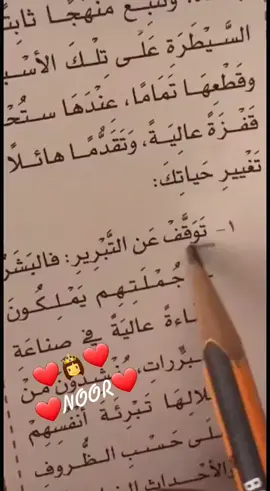 ونتبع منهجًا ثابتًا
السَّيْطَرَةِ عَلَى تِلْكَ الأسْ
وَقَطْعِهَا تَمَامًا، عِنْدَهَا سـتُـحْ
قَفْـزَةً عَالِيَـةً، وَتَقَدُّمًا هائـلًا
تَغْيير حَياتِكَ:
١- تَوَقَّفْ عَن التَّبْرِيرِ: فالبَشَر
جُمْلَتِهِم يَمْلِكُونَ
اءةً عاليَةً في صناعَةِ
بررات، يُنْشِدُونَ مِنْ
لالِها تَبْرِئة أنفسِهِمْ
لَى حَسْبِ الظُّروفِ
والأحداث
NOOR